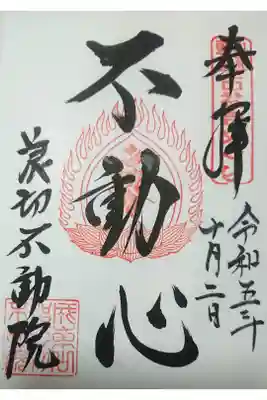 奉拝
令和五年
十月二日
不動心
浪切不動院